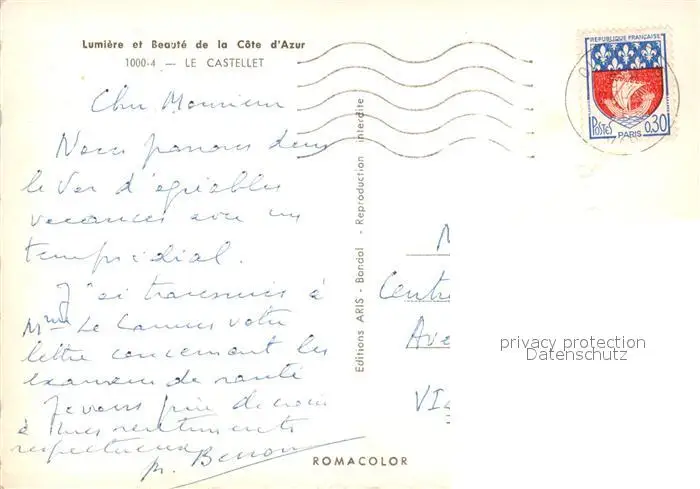 Lumière et Beauté de la Côte d'Azur
1000-4 — LE CASTELLET
Cher Monsieur
Nous passons dans
le Var d'agréables
vacances avec un
temps idéal.
J'ai transmis à
Mme Le Camus votre
lettre concernant les
examens de santé
Je vous prie de croire
à mes sentiments
respectueux
Editions ARIS - Bandol - Reproduction interdite
REPUBLIQUE FRANÇAISE
POSTES
PARIS
0,30
Centr
Ave
privacy protection
Datenschutz
ROMACOLOR